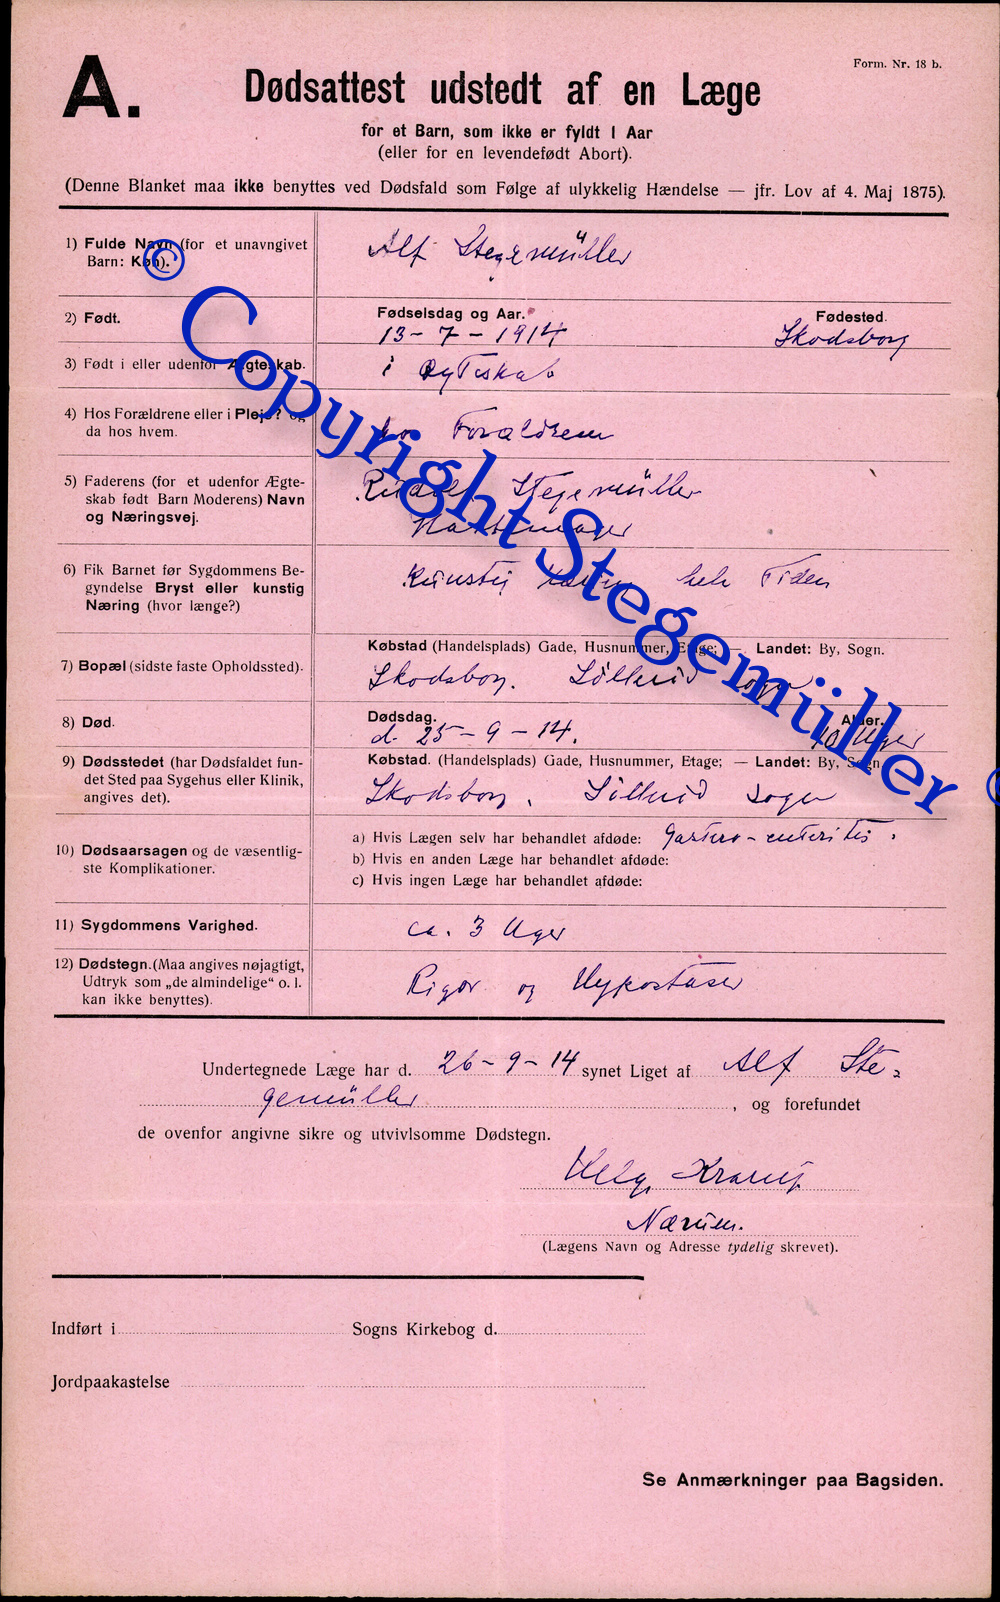 Form. Nr. 18 b.
A.
Dødsattest udstedt af en Læge
for et Barn, som ikke er fyldt 1 Aar
(eller for en levendefødt Abort).
(Denne Blanket maa ikke benyttes ved Dødsfald som Følge af ulykkelig Hændelse — jfr. Lov af 4. Maj 1875).
1) Fulde Navn (for et unavngivet
Barn: Køn).
Alf Stegemüller
2) Født.
Fødselsdag og Aar.
Fødested.
13 - 7 - 1914
Skodsborg
3) Født i eller udenfor Ægteskab.
i Ægteskab
4) Hos Forældrene eller i Pleje? og
da hos hvem.
hos Forældrene
5) Faderens (for et udenfor Ægte-
skab født Barn Moderens) Navn
og Næringsvej.
Stegemüller
6) Fik Barnet før Sygdommens Be-
gyndelse Bryst eller kunstig
Næring (hvor længe?)
Kunstig Næring hele Tiden
7) Bopæl (sidste faste Opholdssted).
Købstad (Handelsplads) Gade, Husnummer, Etage; — Landet: By, Sogn.
Skodsborg. Søllerød Sogn
8) Død.
Dødsdag.
Alder.
d. 25 - 9 - 14.
10 Uger
9) Dødsstedet (har Dødsfaldet fun-
det Sted paa Sygehus eller Klinik,
angives det).
Købstad. (Handelsplads) Gade, Husnummer, Etage; — Landet: By, Sogn.
Skodsborg. Søllerød Sogn
10) Dødsaarsagen og de væsentlig-
ste Komplikationer.
a) Hvis Lægen selv har behandlet afdøde: Gastero-enteritis.
b) Hvis en anden Læge har behandlet afdøde:
c) Hvis ingen Læge har behandlet afdøde:
11) Sygdommens Varighed.
ca. 3 Uger
12) Dødstegn. (Maa angives nøjagtigt,
Udtryk som „de almindelige“ o. l.
kan ikke benyttes).
Rigor og Hypostaser
Undertegnede Læge har d. 26 - 9 - 14 synet Liget af Alf Ste-
gemüller, og forefundet
de ovenfor angivne sikre og utvivlsomme Dødstegn.
Helge Krarup
Nærum.
(Lægens Navn og Adresse tydelig skrevet).
Indført i Sogns Kirkebog d.
Jordpaakastelse
Se Anmærkninger paa Bagsiden.
© Copyright Stegemüller ©